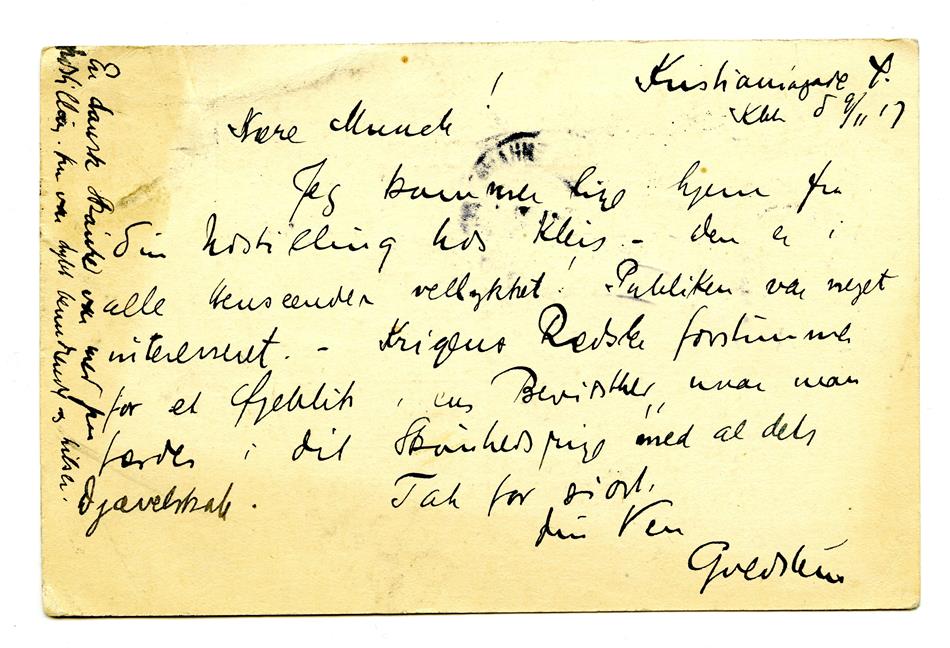 Kristianiagade 4.
Kbh d 9/11 17
Kære Munch!
Jeg kommer lige hjem fra
din Udstilling hos Kleis – den er i
alle Henseender vellykket! Publikum var meget
interesseret. – Krigens Rædsler forstummer
for et Øjeblik i ens Bevidsthed, naar man
færdes i dit Skønhedsrige med al dets
Djævelskab. Tak for sidst.
din Ven
Goldstein
En dansk Skønhed var med paa
Udstilling. hun var dybt beundrende og hilser.